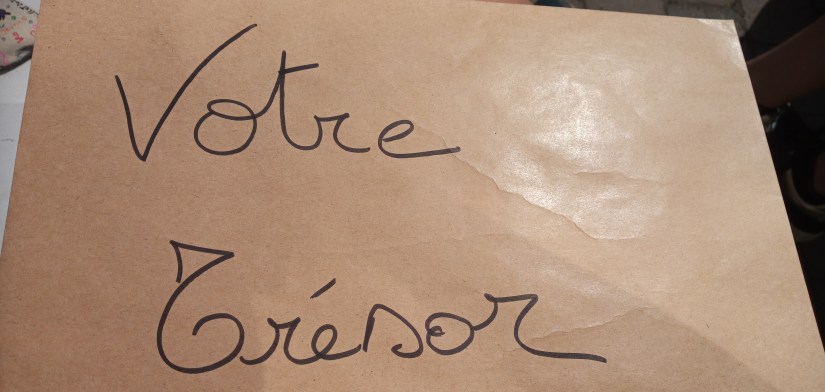 Votre
Trésor